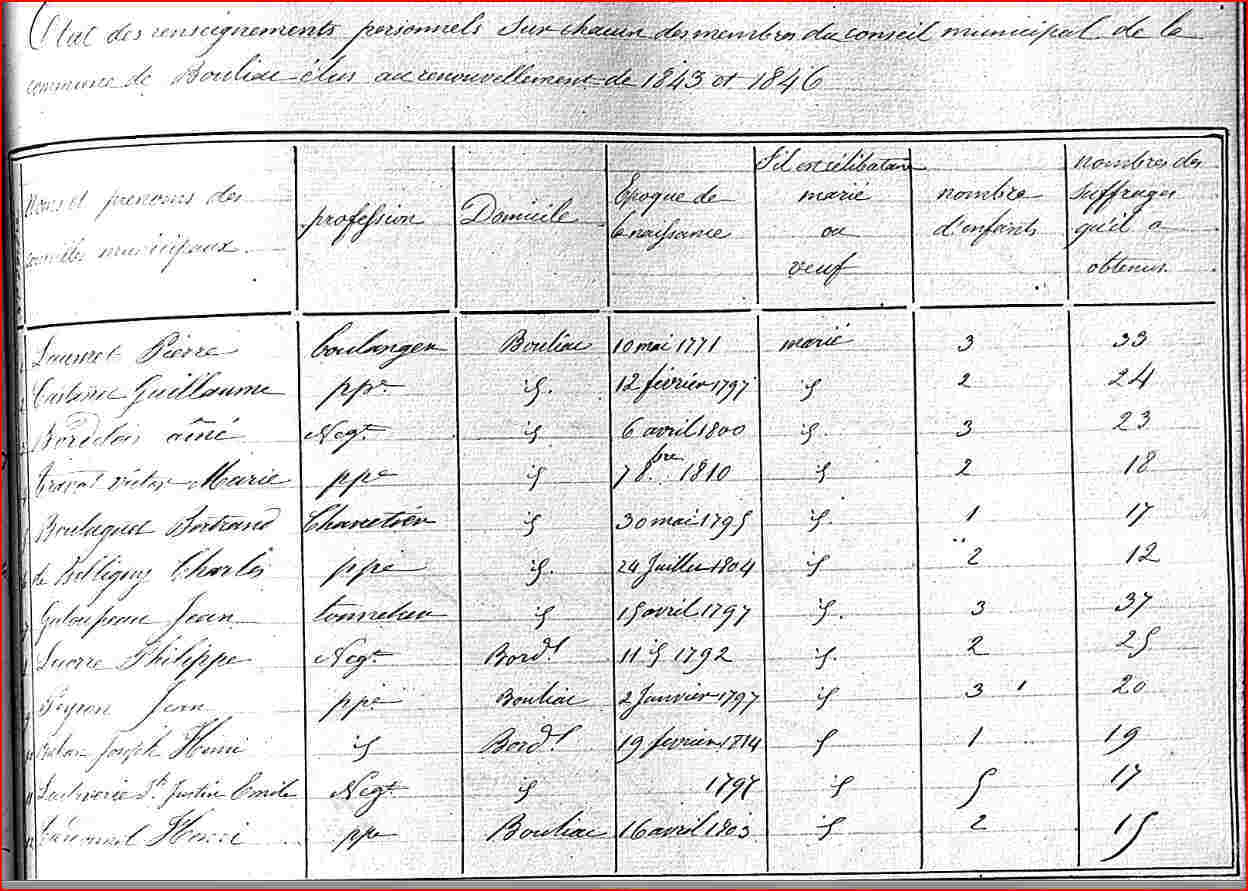 Etat des renseignements personnels sur chacun des membres du conseil municipal de la
commune de Bouliac élus au renouvellement de 1843 et 1846
Noms et prenoms des conseillers municipaux
profession
Domicile
Epoque de naissance
S'il est célibataire marié ou veuf
nombre d'enfants
nombres des suffrages qu'il a obtenus.
Pierre boulanger Bouliac 10 mai 1771 marié 3 33
Guillaume ppre id. 12 février 1797 id 2 24
Bordelois ainé Negt. id 6 avril 1800 id. 3 23
victor Marie ppe id 7 8bre. 1810 id 2 18
Bertrand Charretier id 30 mai 1795 id. 1 17
de Charles ppe id. 24 Juillet 1804 id 2 12
Galoupeau Jean tonnelier id 15 avril 1797 id. 3 37
Philippe Negt. Bordx. 11 id 1792 id. 2 25
Peyron Jean ppe Bouliac 2 Janvier 1797 id 3 20
Joseph Henri id Bordx. 19 février 1814 id 1 19
St. Justin Emile Negt. id id 5 17
Henri ppe Bouliac 16 avril 1803. id 2 15